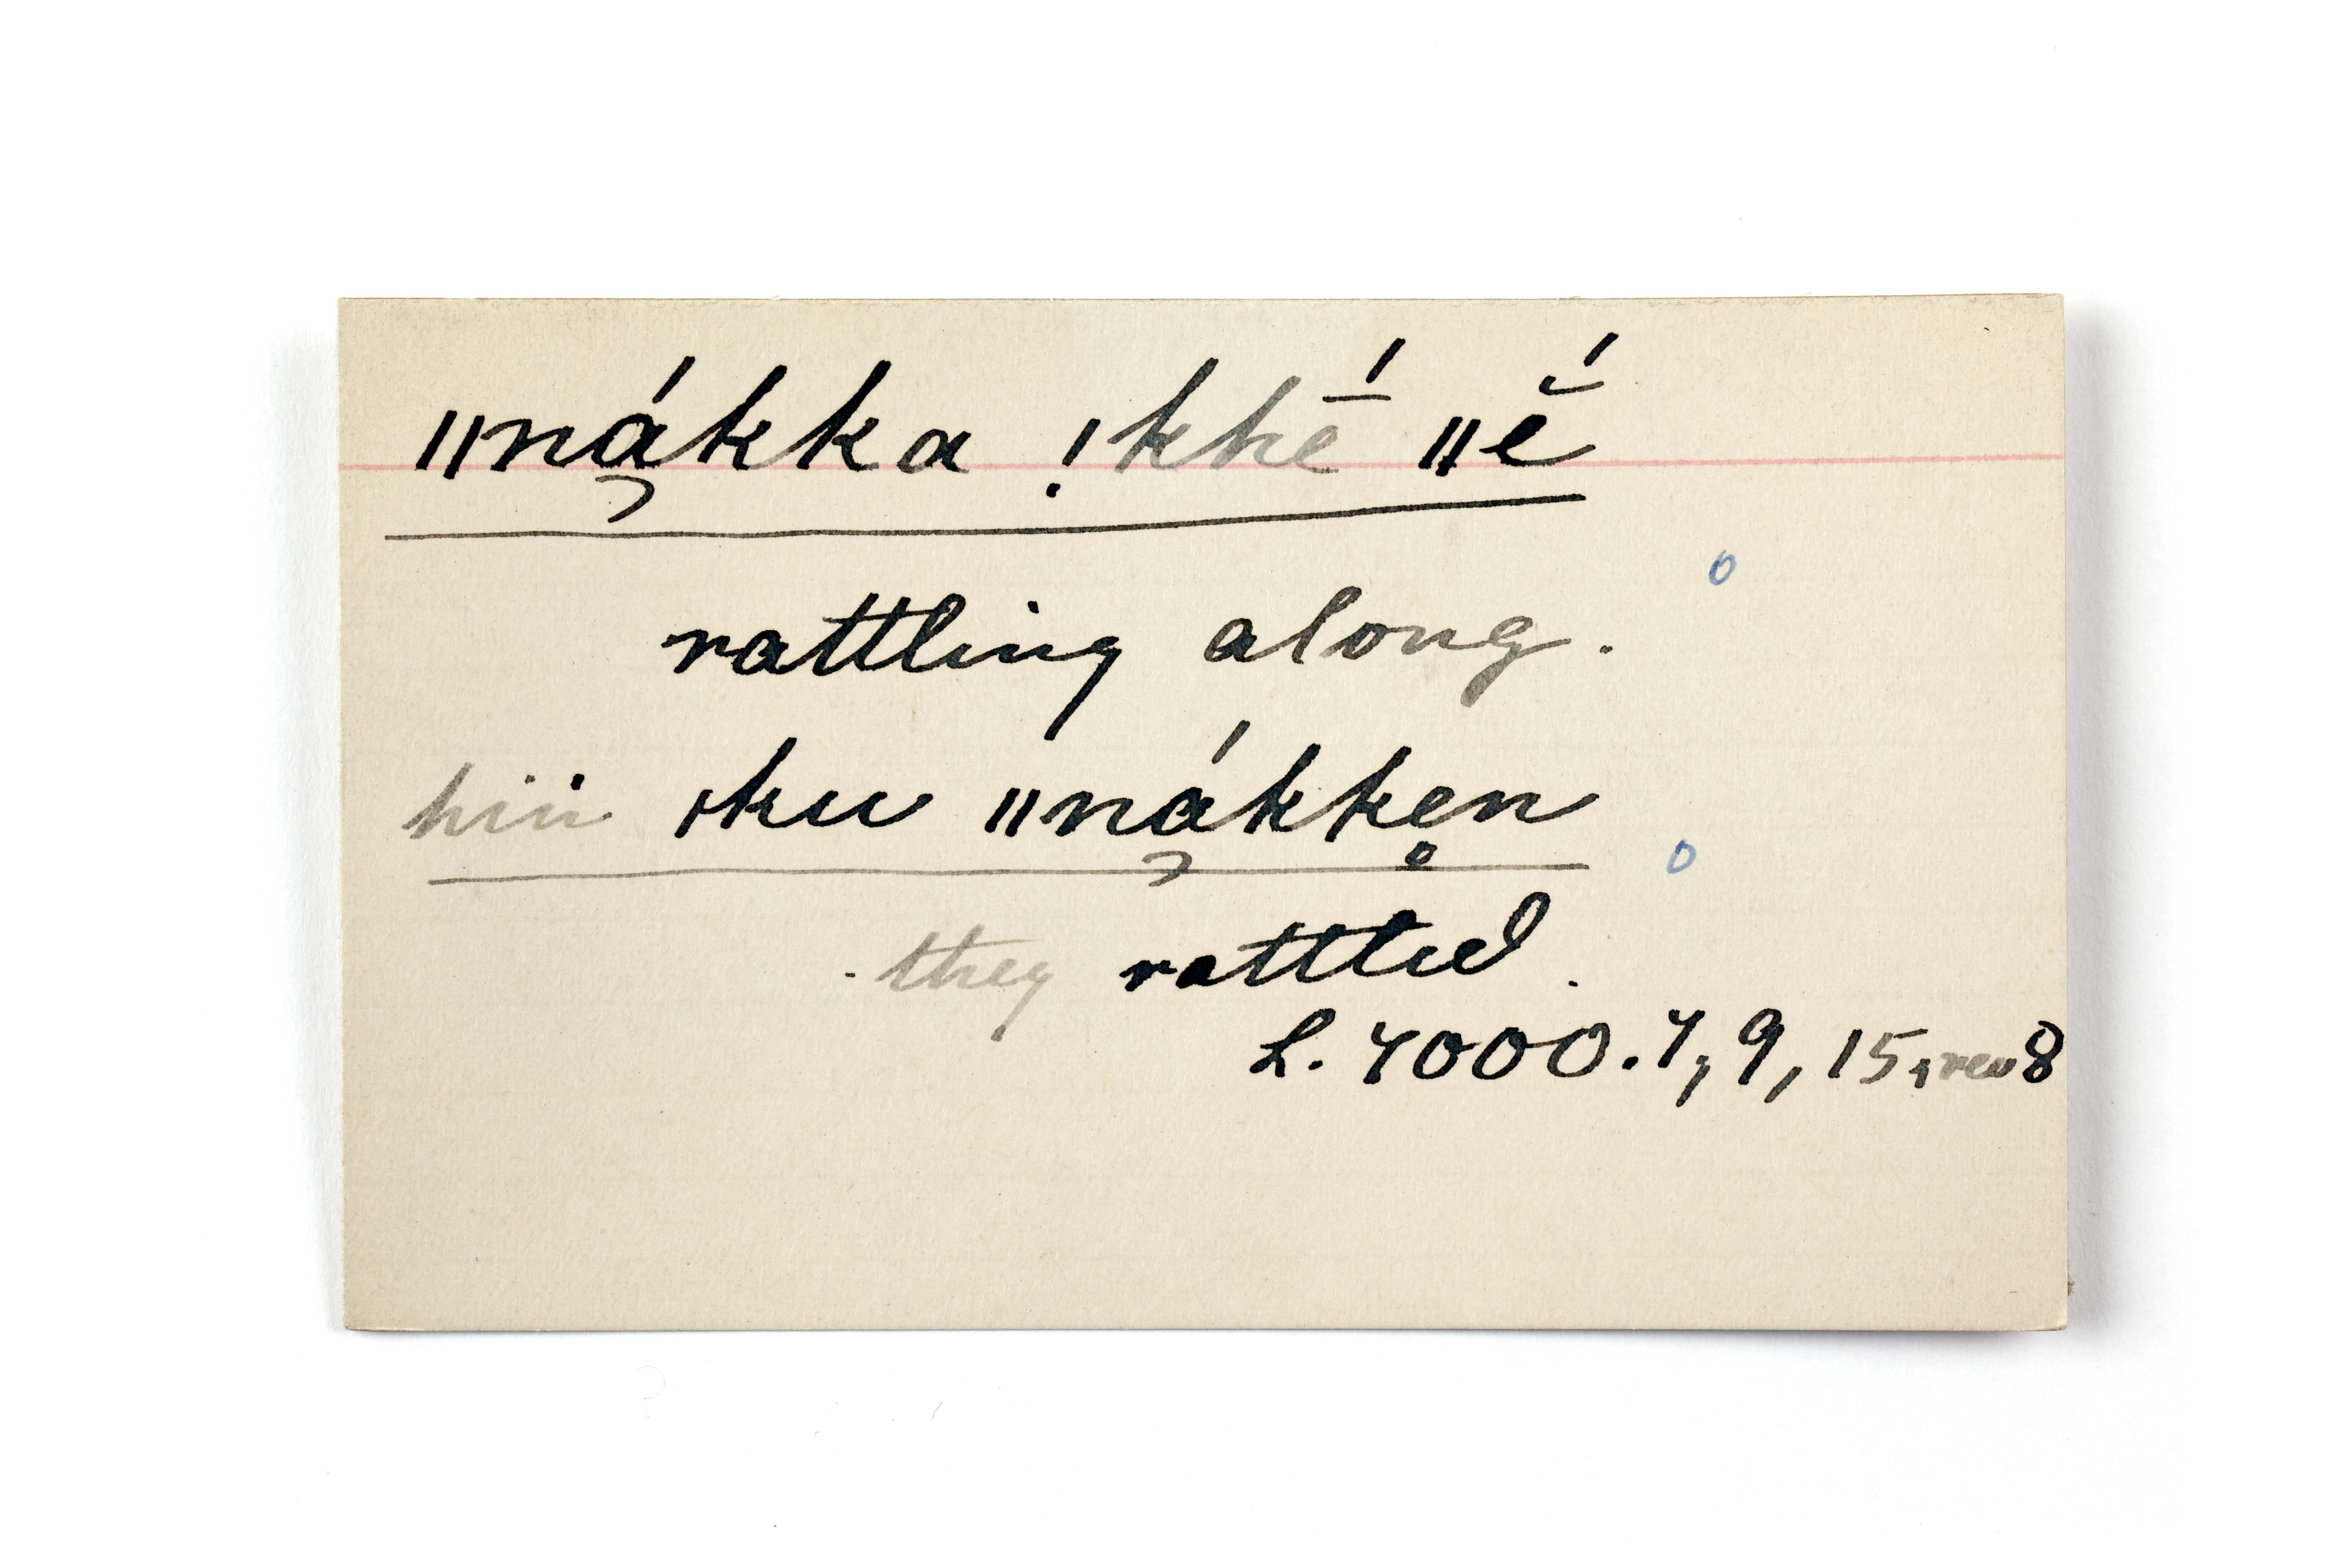 ǁnák̡ka !khé̄ ǁĕ́
rattling along.
hiń ǀku ǁná̡kke̥n
they rattled.
L. 4000. 7, 9, 15, rev 8